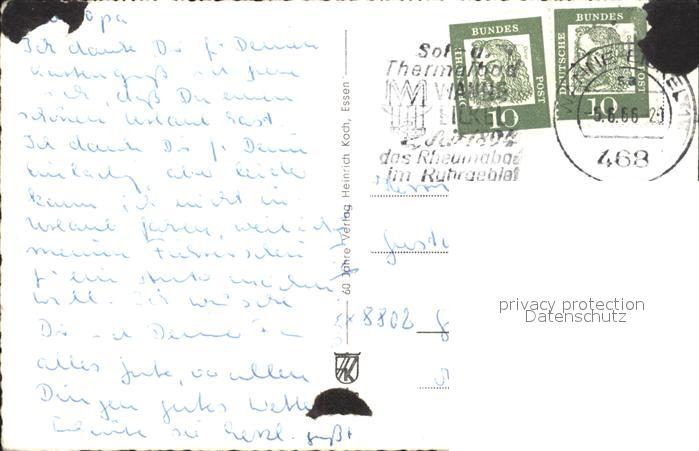 Opa
Ich danke Dir f. Deinen
Kartengruß und freue
mich, daß Du einen
schönen Urlaub hast.
Ich danke Dir f. Deine
Einladg, aber leider
kann ich nicht in
Urlaub fahren, weil ich
meinen Führerschein
f. ein Auto machen
will. Ich wünsche
Dir und Deine
alles Gute, vor allem
Dingen gutes Wetter
60 Jahre Verlag Heinrich Koch, Essen
Thermalbad
WANNE
EICKEL
Seit 1894
das Rheumabad
im Ruhrgebiet
DEUTSCHE BUNDESPOST
10
DEUTSCHE BUNDESPOST
10
WANNE-EICKEL 1
-5.6.66-20
468
Herrn
8802
privacy protection
Datenschutz